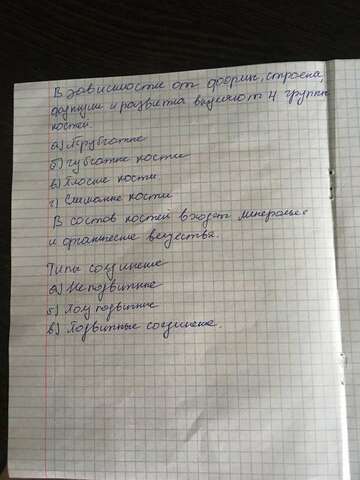 В зависимости от формы, строения,
функции и развития выделяют 4 группы
костей.
а) Трубчатые
б) Губчатые кости
в) Плоские кости
г) Смешанные кости
В состав костей входят минеральные
и органические вещества.
Типы соединение
а) Неподвижные
б) Полуподвижные
в) Подвижные соединение.